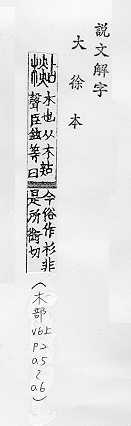 説文解字
大徐本
木也从木煔
聲臣鉉等曰
今俗作杉非
是所銜切
(木部
v6上
p2
a.5
~
a.6)